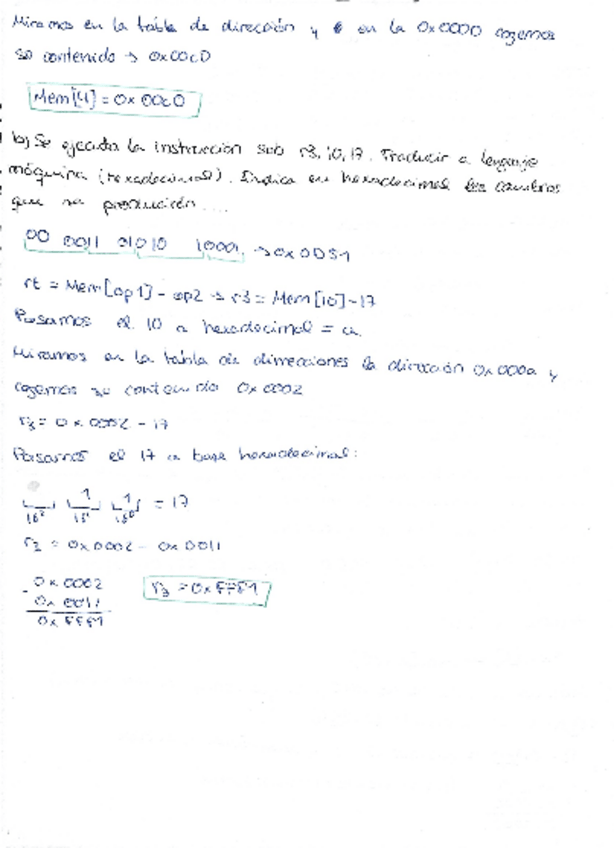 Miramos en la tabla de dirección y en la 0x0000 cogemos
su contenido → 0x00c0
Mem[4] = 0x00c0
b) Se ejecuta la instrucción sub r3, 10, 17. Traducir a lenguaje
máquina (hexadecimal). Indica en hexadecimal los cambios
que se producirán....
00 0011 01010 10001 → 0x0D51
rt = Mem[op1] - op2 → r3 = Mem[10] - 17
Pasamos el 10 a hexadecimal = a.
Miramos en la tabla de direcciones la dirección 0x000a y
cogemos su contenido 0x0002
r3 = 0x0002 - 17
Pasamos el 17 a base hexadecimal:
1 1 = 17
16² 16¹ 16⁰
r3 = 0x0002 - 0x0011
- 0x0002 r3 = 0xFFF1
0x0011
0xFFF1